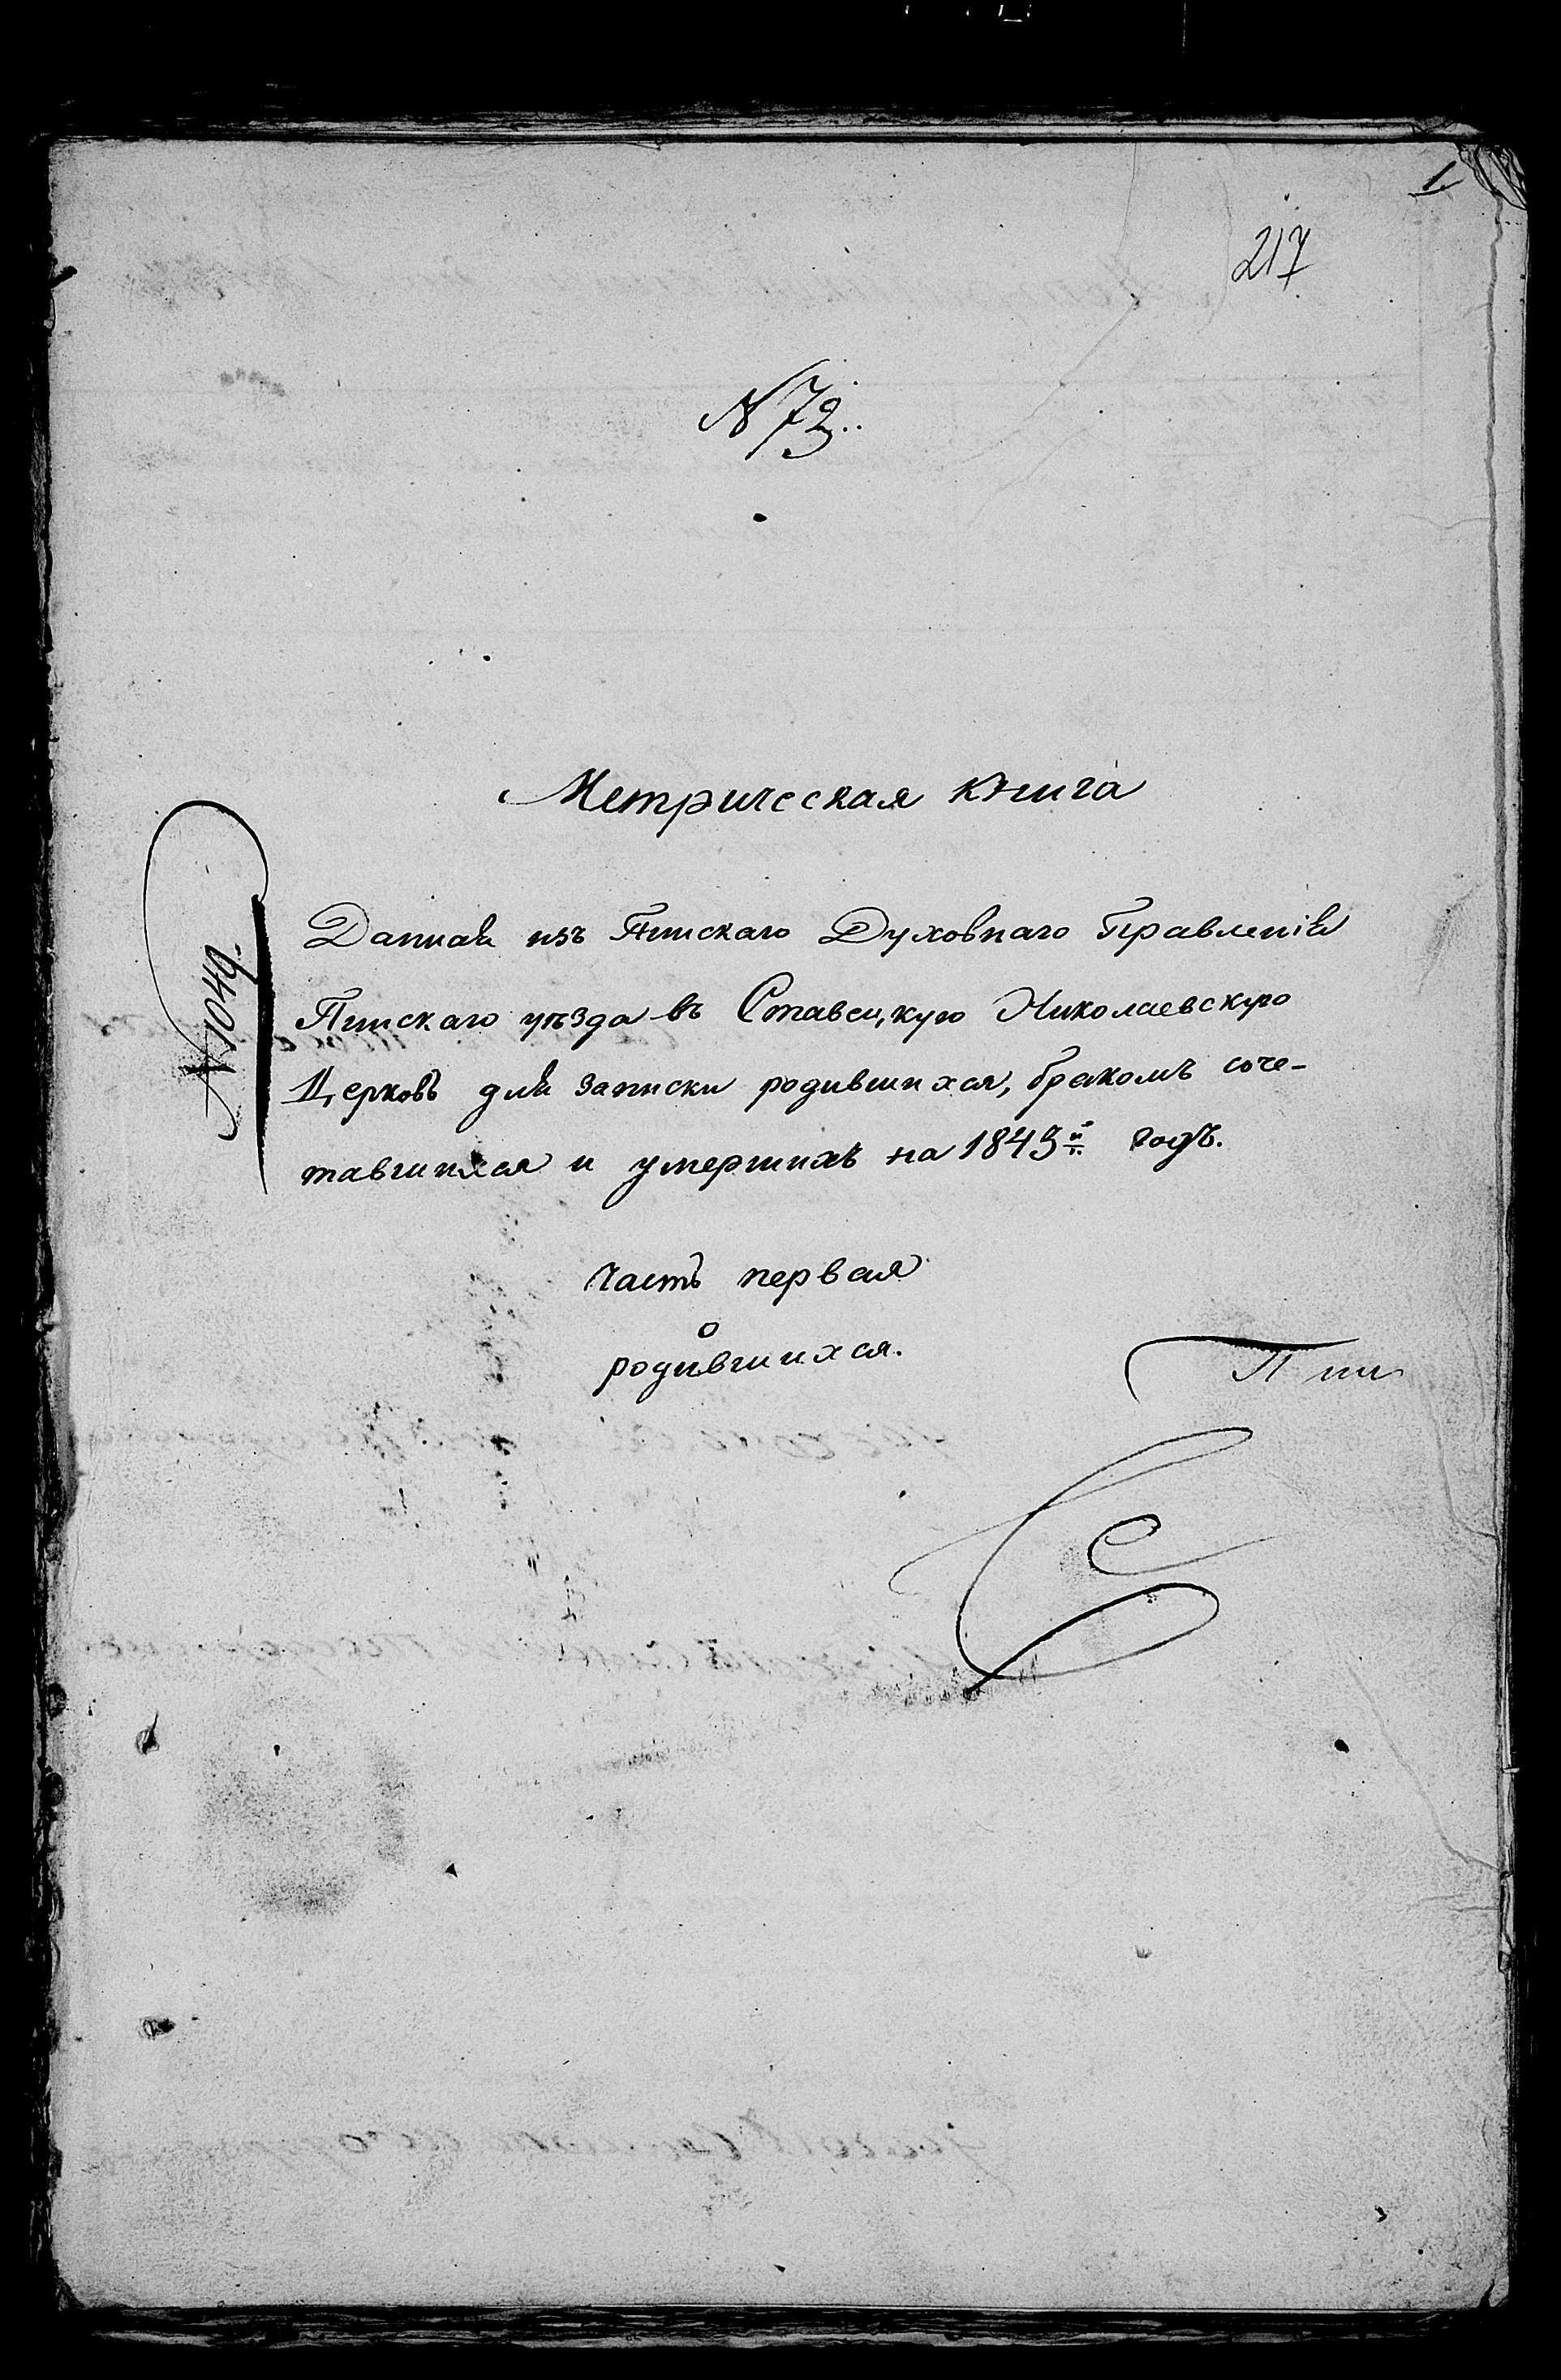 1
217
№ 72.
Метрическая книга
Данная изъ Пинскаго Духовнаго Правленія
Пинскаго уѣзда въ Ставецкую Николаевскую
Церковь для записки родившихся, бракомъ соче-
тавшихся и умершихъ на 1843й годъ.
№ 1049
часть первая
о
родившихся.